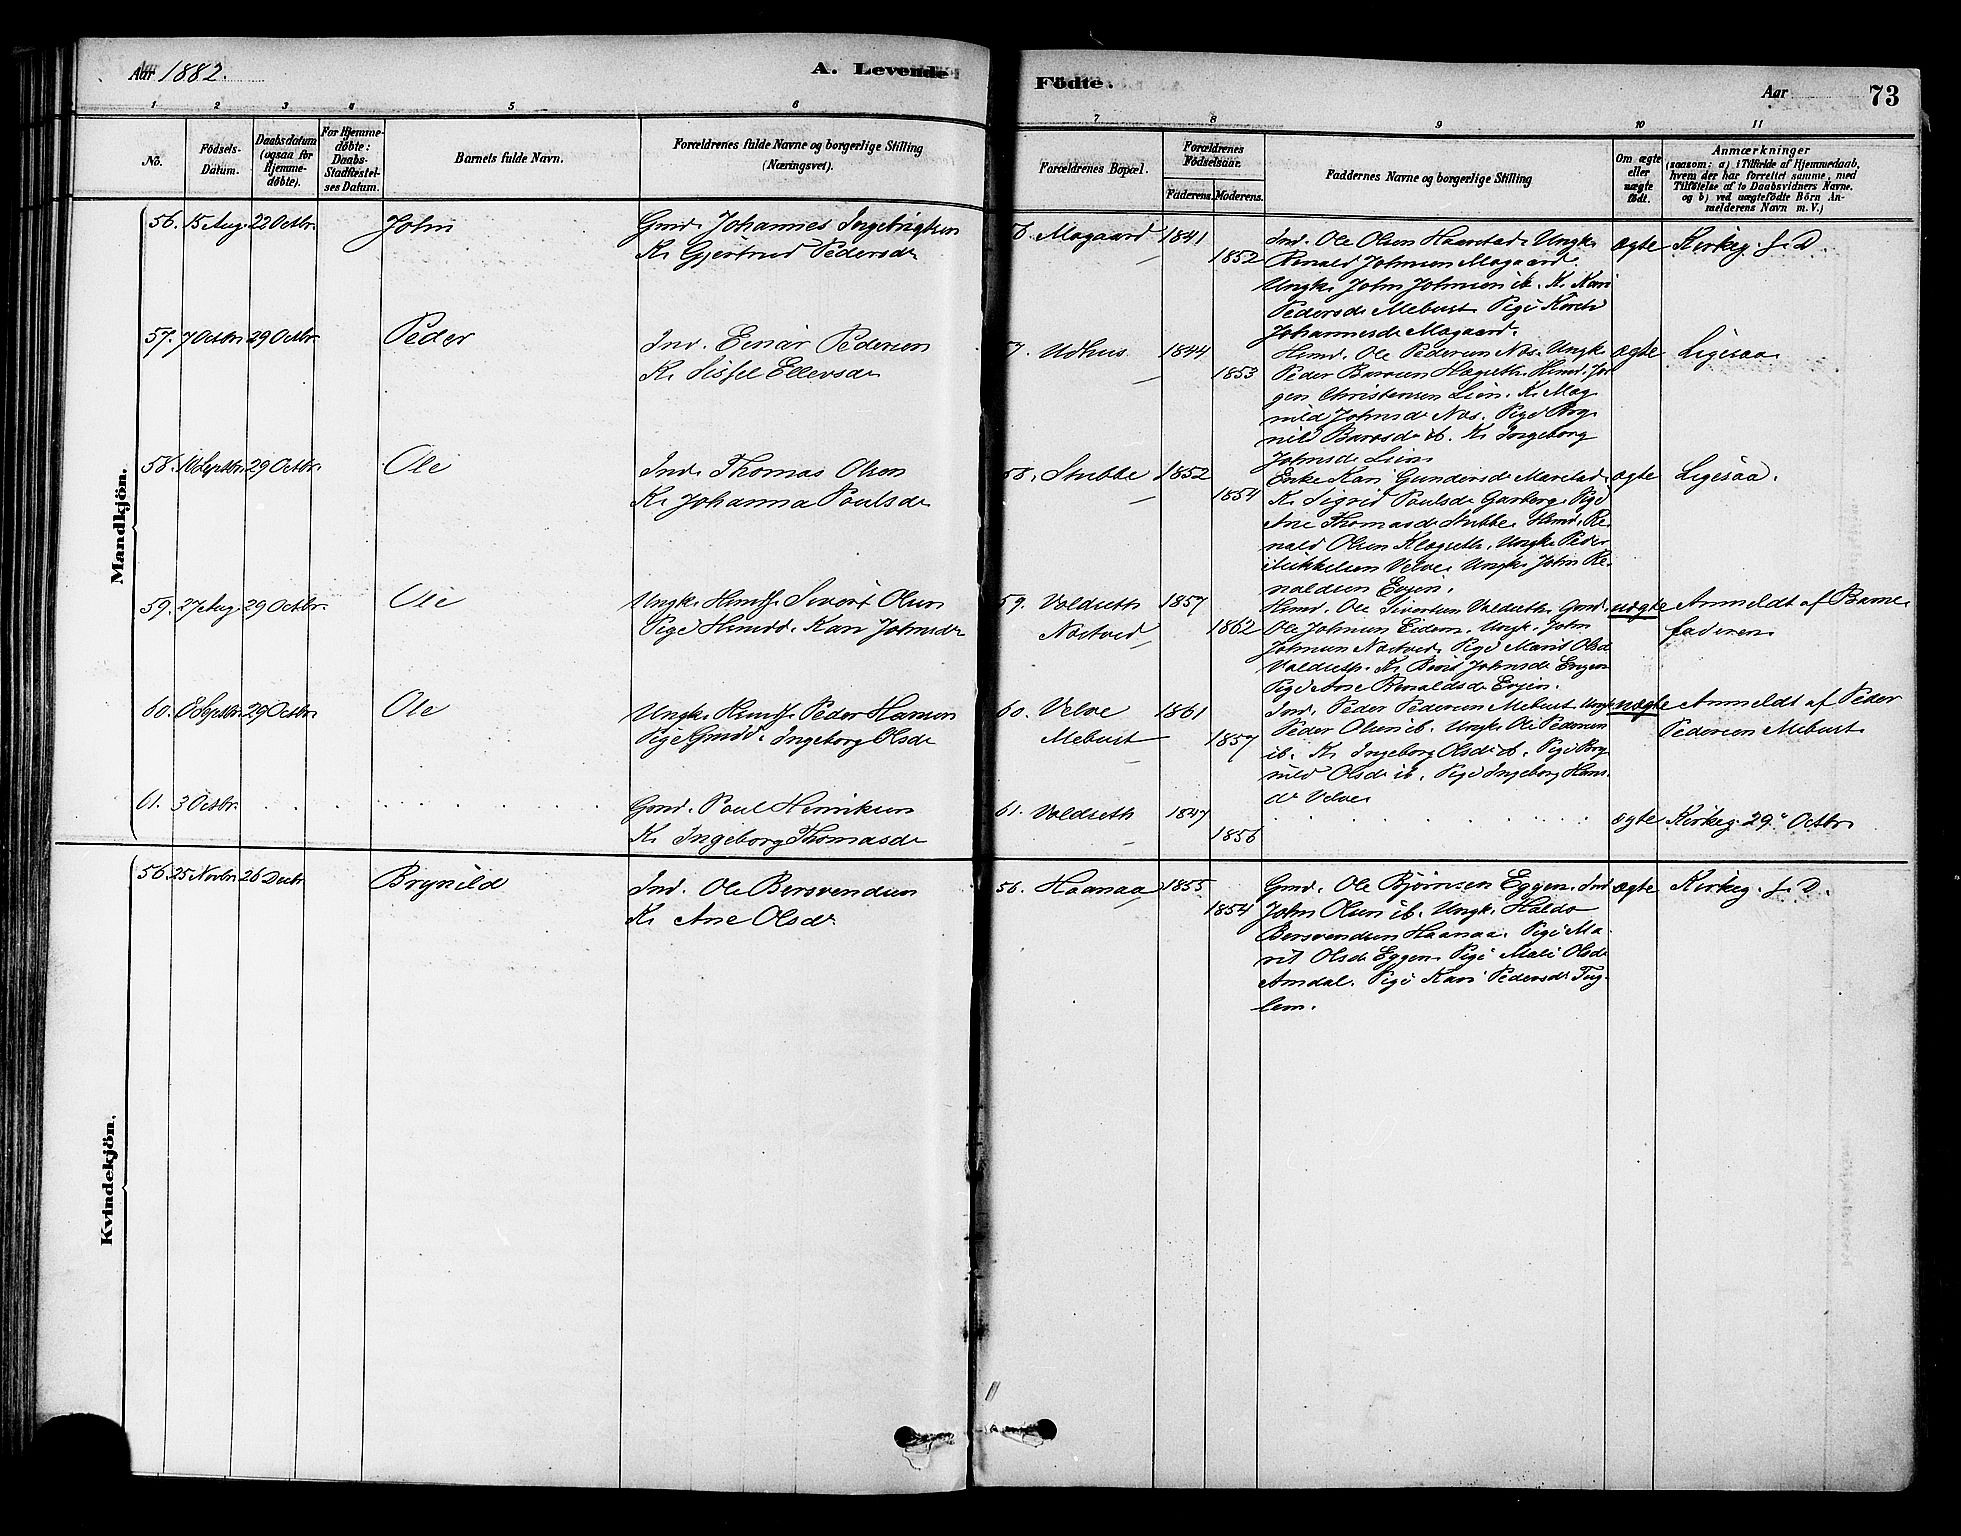 Aar 1882.
A. Levende
Födte.
Aar
73
1 2 3 4 5 6
7 8 9 10 11
No.
Födsels-Datum.
Daabsdatum (ogsaa for Hjemmedøbte).
For Hjemmedøbte: Daabs-Stadfæstelses Datum.
Barnets fulde Navn.
Forældrenes fulde Navne og borgerlige Stilling (Næringsvei).
Forældrenes Bopæl.
Forældrenes Födselsaar.
Faderens. Moderens.
Faddernes Navne og borgerlige Stilling
Om ægte eller uægte födt.
Anmærkninger
(saasom: a) i Tilfælde af Hjemmedaab,
hvem der har forrettet samme, med
Tilföielse af to Daabsvidners Navne.
og b) ved uægtefödte Börn An-
melderens Navn m. V.)
Mandkjön.
56. 15 Aug. 22 Octbr. John
Gmd. Johannes Ingebrigtsen
K. Gjertrud Pedersd.
Mogaard 1841
1852
Ind. Ole Olsen Haarstad. Ungk.
Renald Johnsen Mogaard.
Ungk. John Johnsen ib. K. Kari
Pedersd. Mebust. Pige
Johannesd. Mogaard.
ægte Kirkeg. f. D.
57. 7 Octbr. 29 Octbr. Peder
Ind. Einar Pedersen
K. Sissel Ellevsd.
Udhus 1844
1853
Hmd. Ole Pedersen Nos. Ungk.
Peder Baroen Hægseth. Hmd. Jør
gen Christensen Lien. K. Mag
nild Johnsd. Nos. Pige Brg
nild Barosd. ib. K. Ingeborg
Johnsd. Lien.
ægte Ligesaa
58. 29 Octbr. Ole
Ind. Thomas Olsen
K. Johanna Poulsd.
58. Stubbe 1852
1854
Enke Kari Gundersd. Marstad.
K. Sigrid Poulsd. Garberg. Pige
Ane Thomasd. Stubbe. Hmd. Re-
nald Olsen Klægseth. Ungk. Peder
Mikkelsen Velve. Ungk. John Re-
naldsen Evjen.
ægte Ligesaa.
59. 27 Aug. 29 Octbr. Ole
Ungk. Sivert Olsen
Pige Kari Johnsd.
59. Voldseth 1857
Nostved 1862
Hmd. Ole Sivertsen Voldseth. Gmd.
Ole Johnsen Eidem. Ungk. John
Johnsen Nostved. Pige Marit Olsd.
Voldseth. K. Berit Johnsd. Engen
Pige Ane Renaldsd. Evjen.
uægte Anmeldt af Barne
faderen
60. 8 Septbr. 29 Octbr. Ole
Ungk. Peder Hansen
Pige Gmdd. Ingeborg Olsd.
60. Velve 1861
Mebust 1857
Ind. Peder Pedersen Mebust. Ungk.
Peder Olsen ib. Ungk. Ole Pedersen
ib. K. Ingeborg Olsd. ib. Pige Brg
nild Olsd. ib. Pige Ingeborg Hans
d. Velve
uægte Anmeldt af Peder
Pedersen Mebust.
61. 3 Octbr.
Gmd. Poul Henriksen
K. Ingeborg Thomasd.
61. Voldseth 1847
1856
ægte Kirkeg. 29. Octbr.
Kvindekjön.
56. 25 Novbr. 26 Decbr. Brynild
Ind. Ole Bersvendsen
K. Ane Olsd.
56. Haanaa 1855
1854
Gmd. Ole Bjørnsen Eggen. Ind.
John Olsen ib. Ungk. Haldo
Bersvendsen Haanaa. Pige Ma-
rit Olsd. Eggen. Pige Mali Olsd.
Amdal. Pige Kari Pedersd. Tug-
lem.
ægte Kirkeg. f. D.